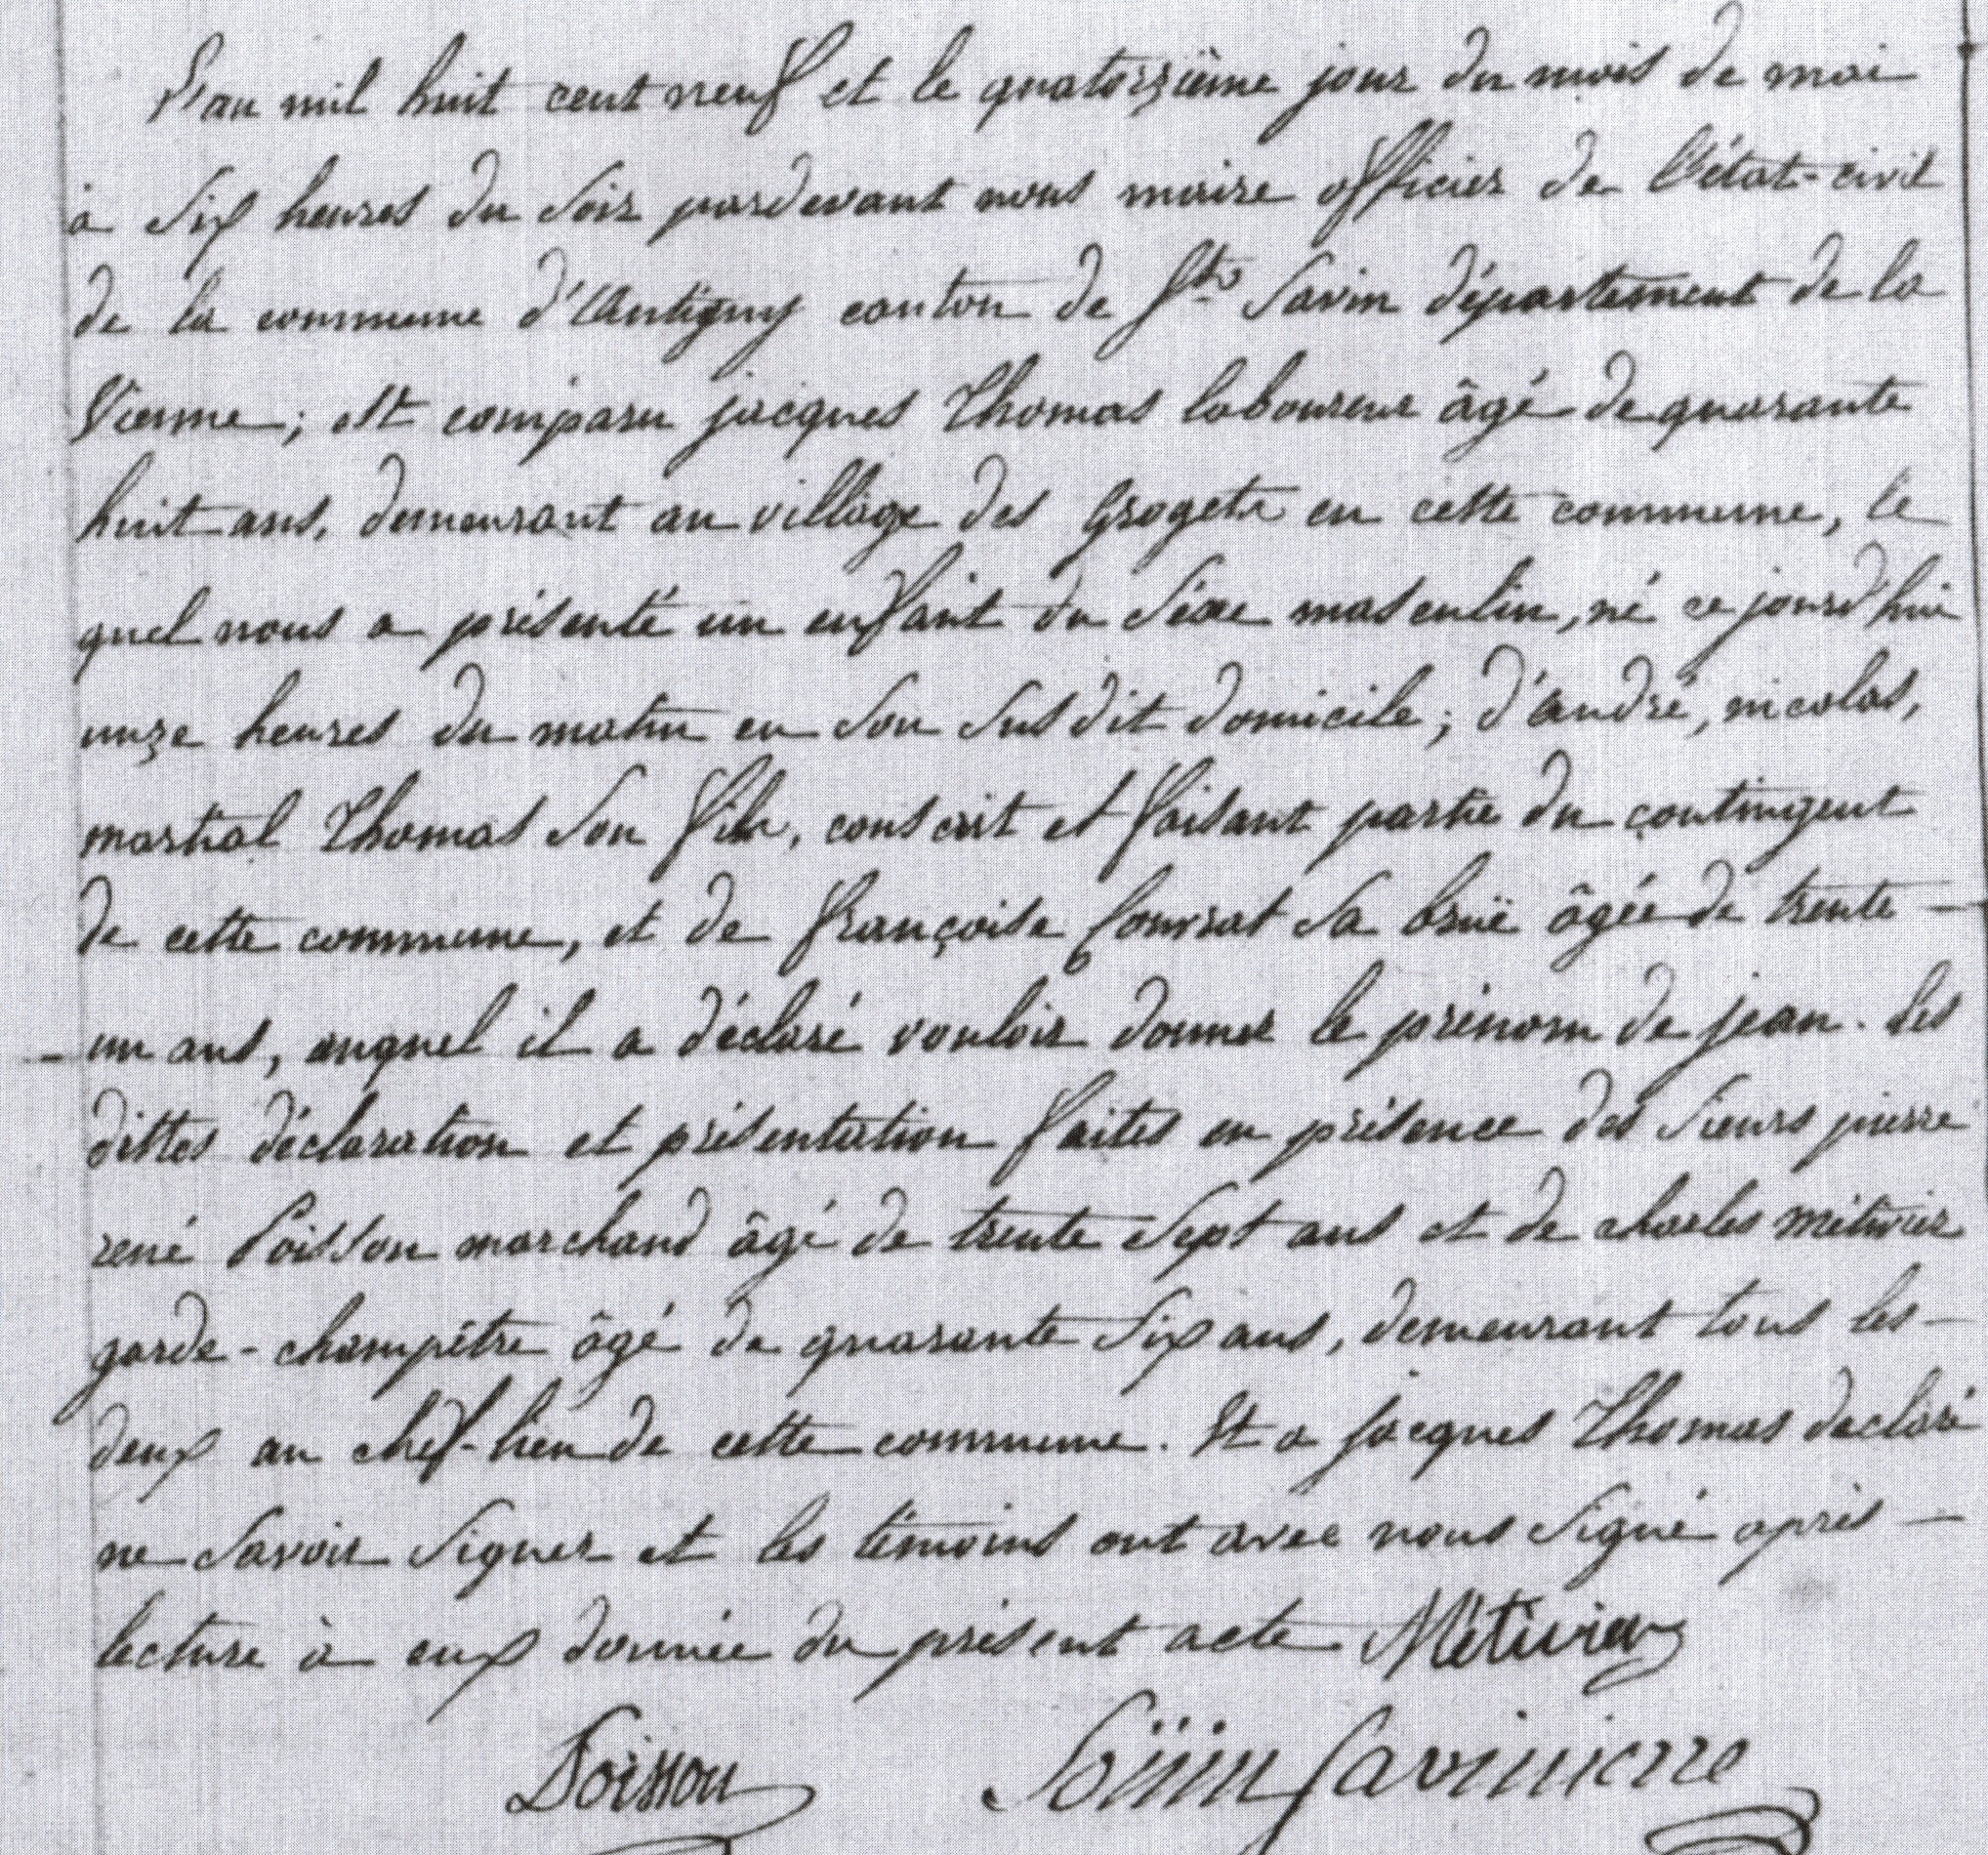 L'an mil huit cent neuf et le quatorzième jour du mois de mai
à six heures du soir pardevant nous maire officier de l'état-civil
de la commune d'Antigny canton de St Savin département de la
Vienne; est comparu jacques Thomas laboureur âgé de quarante
huit ans, demeurant au village des Grogets en cette commune, le
quel nous a présenté un enfant du séxe masculin, né ce jourd'hui
unze heures du matin en son susdit domicile; d'andré, nicolas,
martial Thomas son fils, conscrit et faisant partie du contingent
de cette commune, et de françoise sa bruë âgée de trente
un ans, auquel il a déclaré vouloir donner le prénom de jean. Les
dittes déclaration et présentation faites en présence des sieurs pierre
rené Poisson marchand âgé de trente sept ans et de charles métivier
garde-champêtre âgé de quarante six ans, demeurant tous les
deux au chef-lieu de cette commune. Et a jacques Thomas declaré
ne savoir signer et les témoins ont avec nous signé après
lecture à eux donnée du présent acte Métivier
Poisson